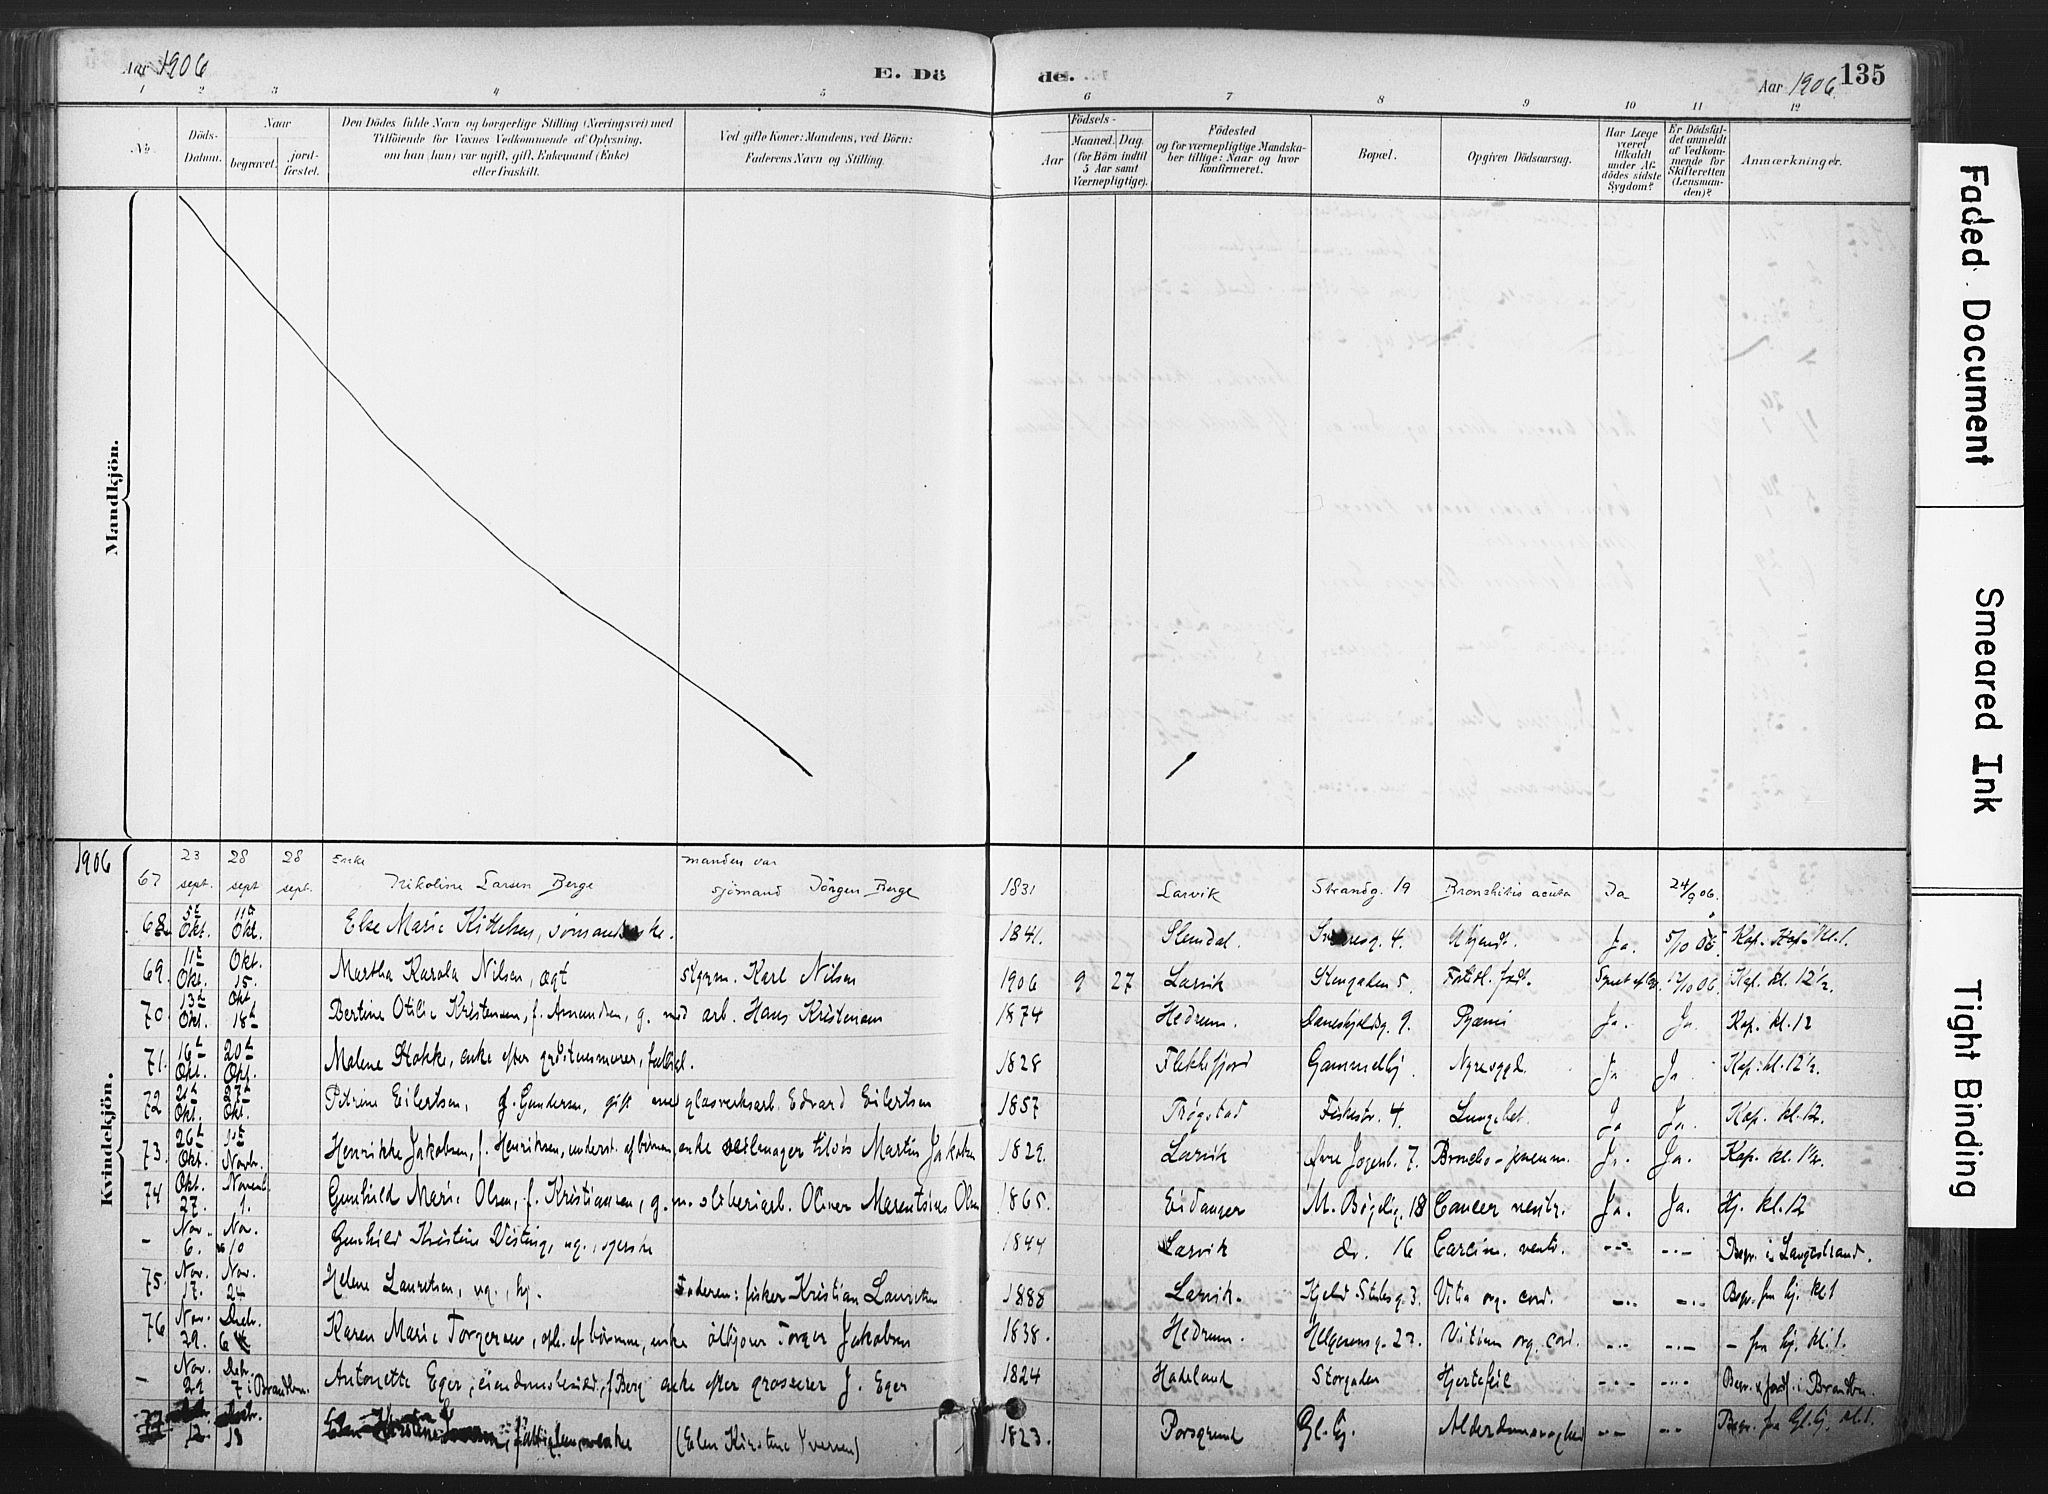 Aar 1906
E. Dö
de.
Aar 1906.
135
1 2 3 4 5 6 7 8 9 10 11 12
No.
Döds-
Datum.
Naar
begravet.
jord-
fæstet.
Den Dödes fulde Navn og borgerlige Stilling (Næringsvei) med
Tilföiende for Voxnes Vedkommende af Oplysning,
om han (hun) var ugift, gift, Enkemand (Enke)
eller fraskilt.
Ved gifte Koner: Mandens, ved Börn:
Faderens Navn og Stilling.
Födsels-
Aar
Maaned.
Dag.
(for Börn indtil
5 Aar samt
Værnepligtige).
Födested
og for værnepligtige Mandska-
ber tillige: Naar og hvor
konfirmeret.
Bopæl.
Opgiven Dödsaarsag.
Har Læge
været
tilkaldt
under Af-
dödes sidste
Sygdom?
Er Dödsfal-
det anmeldt
af Vedkom-
mende for
Skifteretten
(Lensman-
den)?
Anmærkninger.
Mandkjön.
Kvindekjön.
1906
67 23 sept. 28 sept 28 sept. Enke Nikoline Larsen Berge manden var sjömand Jörgen Berge 1831 Larvik Strandg. 19 Bronchitis acuta Ja 24/9 06.
68 5te Okt. 11te Okt. Else Marie Kittelsen, sömandsenke. 1841. Slemdal. 4. Ukjendt. Ja. 5/10 06 Kap. kl. 1.
69. 11te Okt. Okt. 15. Martha Karola Nilsen, ægt Karl Nilsen 1906 9 27 Larvik Stengaden 5. 12/10 06. Kap. kl. 12½.
70. 13de Okt. Okt. 18de Bertine Otilie Kristensen, f. Amundsen, g. med arb. Hans Kristensen 1874 Hedrum. Daneskjoldsg. 9. Pyæmi Ja. Ja. Kap. kl. 12
71. 16de Okt. 20de Okt. Malene Stokke, enke efter 1828 Flekkefjord Gammelby Nyresygd. Ja Ja Kap. kl. 12½.
72 21de Okt. 27de Okt. Petrine Eilertsen, f. Gundersen, gift med glasverksarb. Edvard Eilertsen 1857 Trøgstad Fiskestr. 4. Lungebet. Ja Ja. Kap. kl. 12.
73. 26de Okt. 1ste Novbr. Henrikke Jakobsen, f. Henriksen, underst. af børnene, enke seilmager Martin Jakobsen 1829. Larvik Øvre Jegerb. 7. Broncho-pneum. Ja. Ja. Kap. kl. 1½.
74 Okt. 27. Novemb. 1. Gunhild Marie Olsen, f. Kristiansen, g. m. sliberiarb. Oliver Marentsius Olsen 1865. Eidanger M. Bøgelig. 18 Cancer ventr. Ja. Ja. Hj. kl. 12
- Nov. 6. Nov. 10 Gunhild Kristine Wisting, ug., syerske 1844 Larvik do. 16 Carcin. ventr. -"- -"- Begr. i Langestrand.
75. Nov. 17. Nov. 24 Helene Lauritsen, ug., hj. Faderen: fisker Kristian Lauritsen 1888 Larvik. Kjeld Stubsg. 3. Vitia org. cord. -"- -"- Begr. fra hj. kl. 1
76 Nov. 29. Debr. 6 Karen Marie Torgersen, af børnene, enke ølkjører Torger Jakobsen 1838. Hedrum. Helgeroesg. 23. Vitium org. cord. -"- -"- - fra hj. kl. 1.
- Nov. 29 Debr. 7 i Brandbu. Antonette Eger, eiendomsbesidd., f. Berg enke efter grosserer J. Eger 1824 Hadeland Storgaden Hjertefeil -"- -"- Begr. & jordf. i Brandbu.
77 12. 18 fattiglem, enke (Elen Kirstine Iversen) 1823. Porsgrund Gl.hj. Alderdomssvaghed -"- -"- Begr. fra Gl.hj. kl. 1.
Faded Document
Smeared Ink
Tight Binding